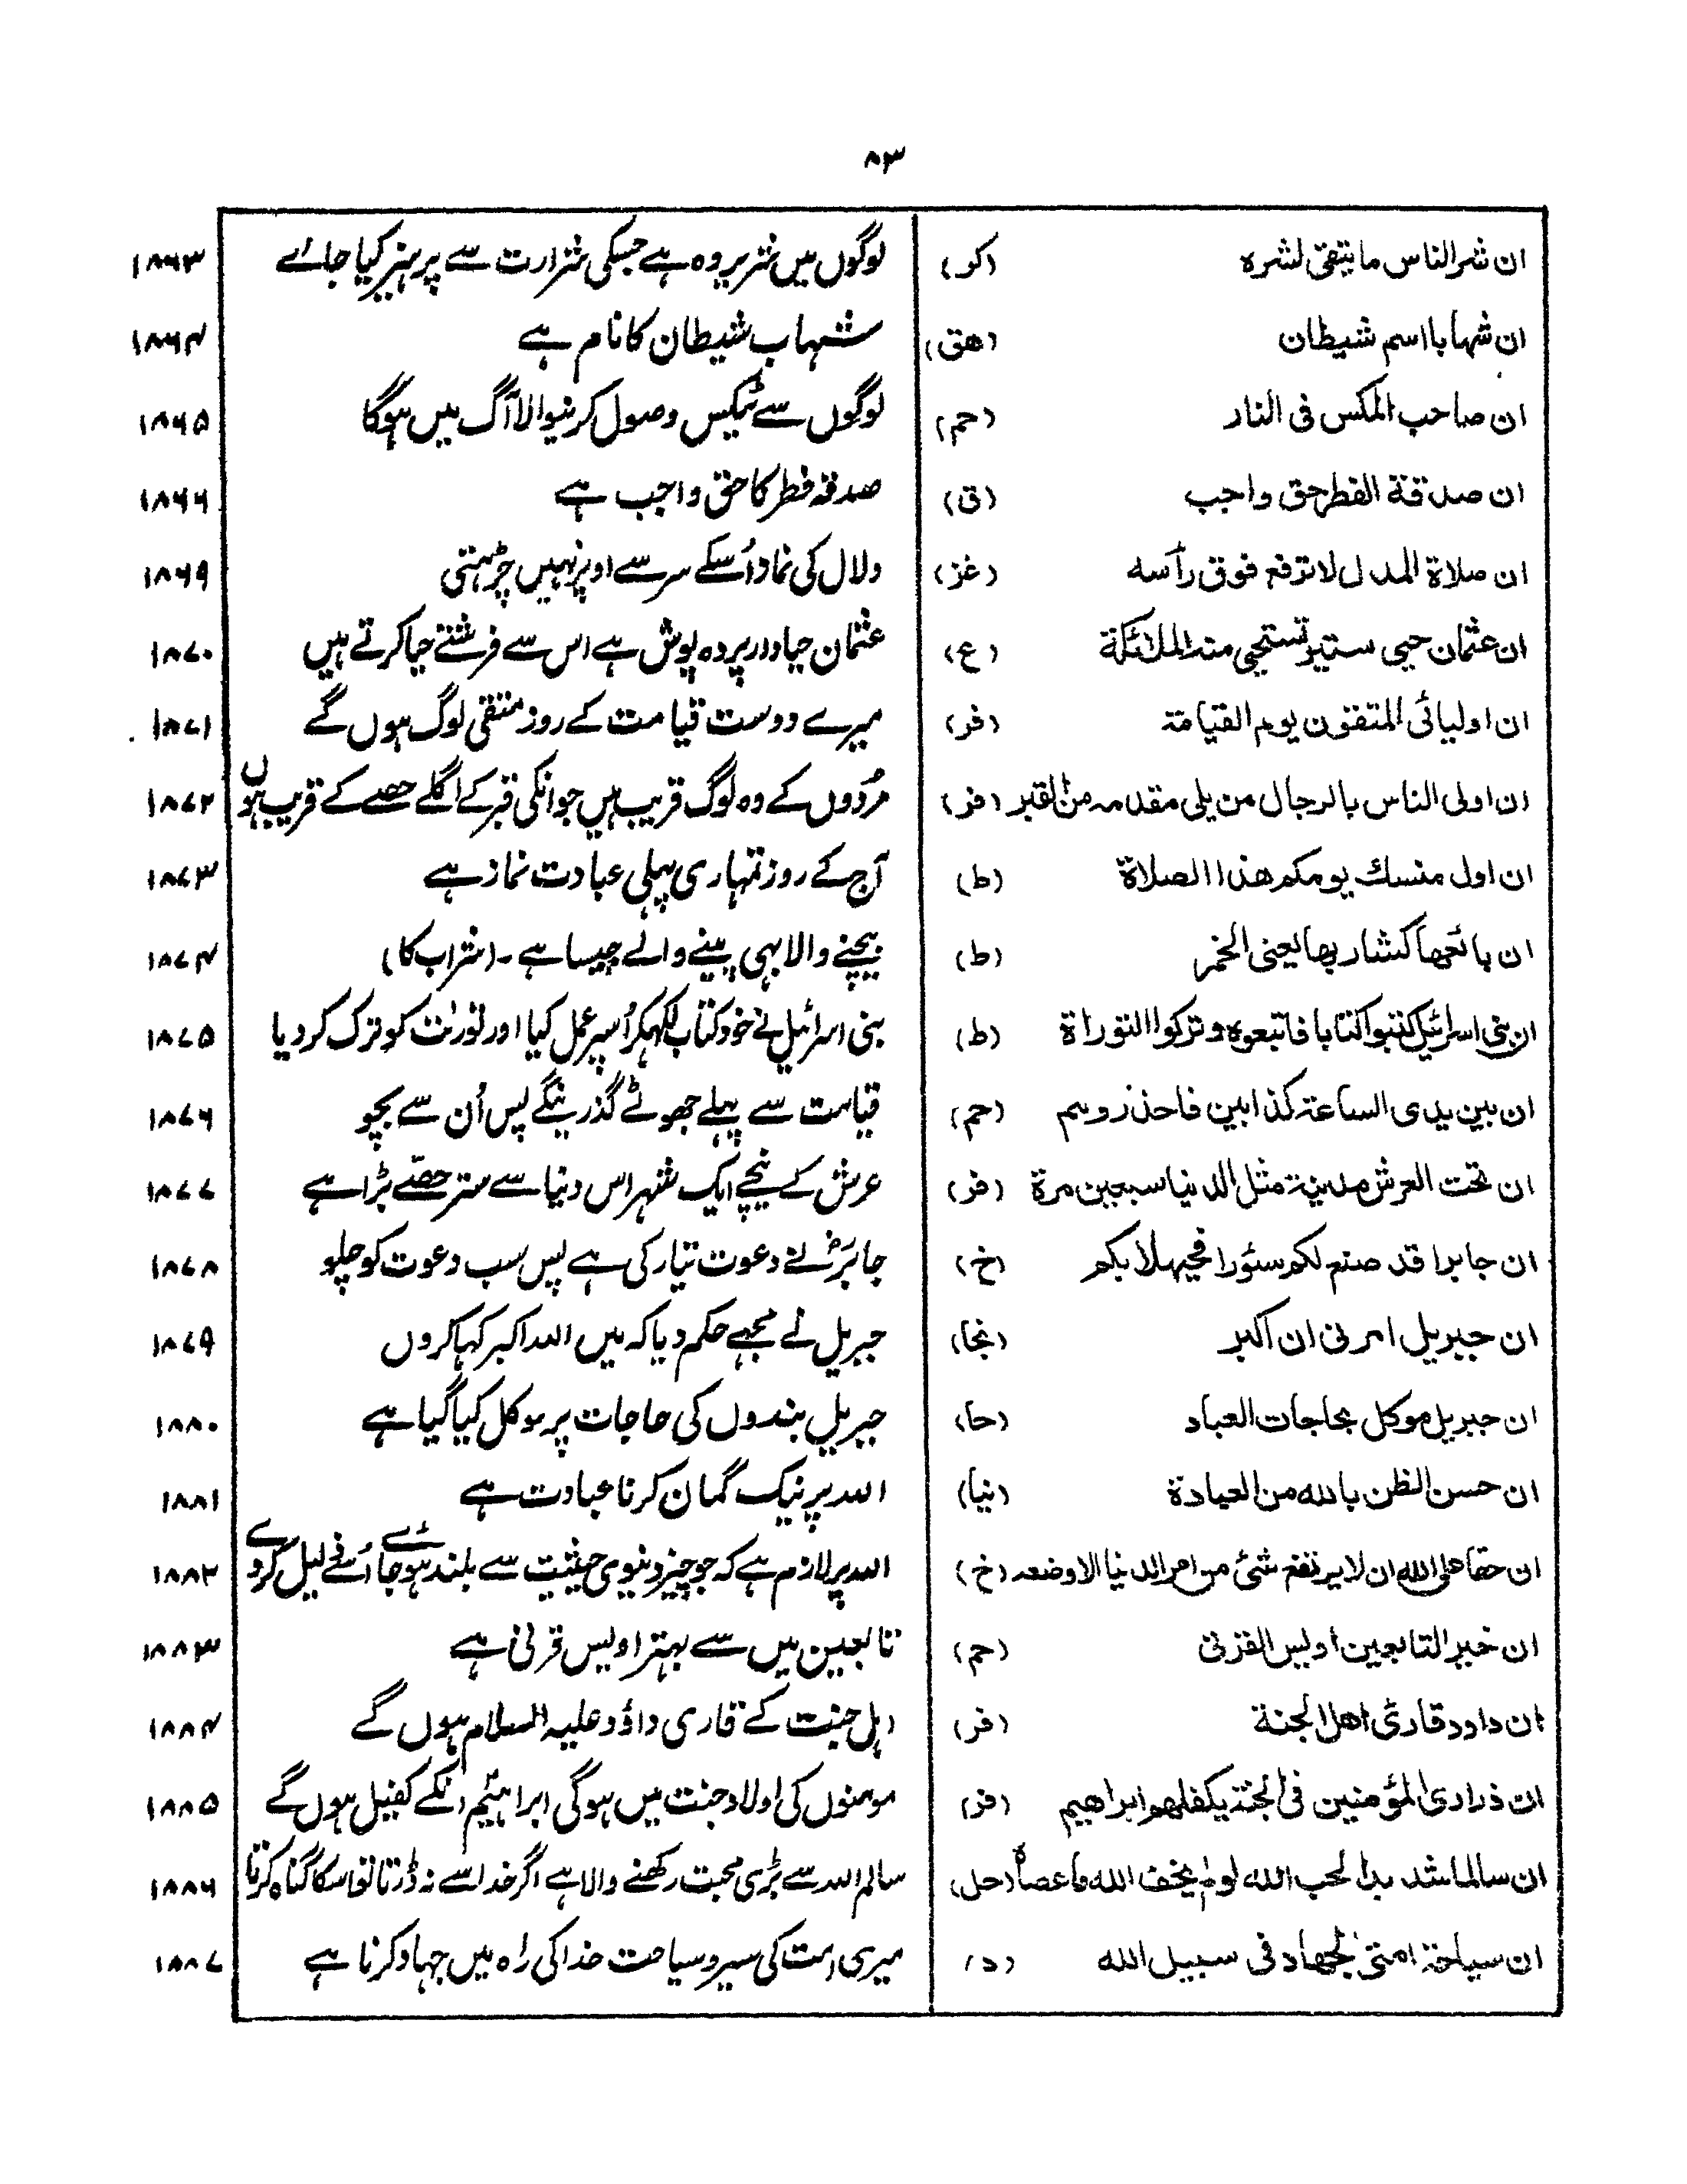 ۸۳
ان شر الناس ما یتقی لشره (کر) لوگوں میں شریر وہ ہے جسکی شرارت سے پرہیز کیا جائے ۱۸۶۳
ان شهابا اسم شیطان (هق) شہاب شیطان کا نام ہے ۱۸۶۴
ان صاحب المکس فی النار (حم) لوگوں سے ٹیکس وصول کرنیوالا آگ میں ہوگا ۱۸۶۵
ان صدقة الفطر حق واجب (ق) صدقہ فطر کا حق واجب ہے ۱۸۶۶
ان صلاة المدل لا ترفع فوق رأسه (غز) دلال کی نماز اُسکے سر سے اوپر نہیں چڑہتی ۱۸۶۹
ان عثمان حیی ستیر تستحیی منه الملائكة (ع) عثمان حیادار پردہ پوش ہے اس سے فرشتے حیا کرتے ہیں ۱۸۷۰
ان اولیائی المتقون یوم القیامة (فر) میرے دوست قیامت کے روز متقی لوگ ہوں گے ۱۸۷۱
ان اولی الناس بالرجال من یلی مقدمه من القبر (فر) مُردوں کے وہ لوگ قریب ہیں جو انکی قبر کے اگلے حصے کے قریب ہوں ۱۸۷۲
ان اول منسك یومکم هذا الصلاة (ط) آج کے روز تمہاری پہلی عبادت نماز ہے ۱۸۷۳
ان بائعها کشاربها یعنی الخمر (ط) بیچنے والا بہی پینے والے جیسا ہے ۔ (شراب کا) ۱۸۷۴
ان بنی اسرائیل کتبوا کتابا فاتبعوه وترکوا التوراة (ط) بنی اسرائیل نے خود کتاب لکہکر اُسپر عمل کیا اور تورٰت کو ترک کر دیا ۱۸۷۵
ان بین یدی الساعة کذابین فاحذروهم (حم) قیامت سے پہلے جھوٹے گذرینگے پس اُن سے بچو ۱۸۷۶
ان تحت العرش مدینة مثل الدنیا سبعین مرة (فر) عرش کے نیچے ایک شہر اس دنیا سے ستر حصّے بڑا ہے ۱۸۷۷
ان جابرا قد صنع لکم سئورا فحیهلا بکم (خ) جابرؓ نے دعوت تیار کی ہے پس سب دعوت کو چلو ۱۸۷۸
ان جبریل امرنی ان اکبر (نجا) جبریل نے مجہے حکم دیا کہ میں اللہ اکبر کہا کروں ۱۸۷۹
ان جبریل موکل بحاجات العباد (حا) جبریل بندوں کی حاجات پر موکل کیا گیا ہے ۱۸۸۰
ان حسن الظن بالله من العبادة (نیا) اللہ پر نیک گمان کرنا عبادت ہے ۱۸۸۱
ان حقا علی الله ان لا یرتفع شئ من امر الدنیا الا وضعه (خ) اللہ پر لازم ہے کہ جو چیز دنیوی حیثیت سے بلند ہو جائے اُسے ذلیل کردے ۱۸۸۲
ان خیر التابعین اویس القرنی (حم) تابعین میں سے بہتر اویس قرنی ہے ۱۸۸۳
ان داود قارئ اهل الجنة (فر) اہل جنت کے قاری داؤد علیہ السلام ہوں گے ۱۸۸۴
ان ذراری المؤمنین فی الجنة یکفلهم ابراهیم (فر) مومنوں کی اولاد جنت میں ہوگی ابراہیمؑ انکے کفیل ہوں گے ۱۸۸۵
ان سالما شدید الحب الله لو لم یخف الله ما عصاه (حل) سالم اللہ سے بڑی محبت رکھنے والا ہے اگر خدا سے نہ ڈرتا تو اسکا گناہ نہ کرتا ۱۸۸۶
ان سیاحة امتی الجهاد فی سبیل الله (د) میری امت کی سیر وسیاحت خدا کی راہ میں جہاد کرنا ہے ۱۸۸۷